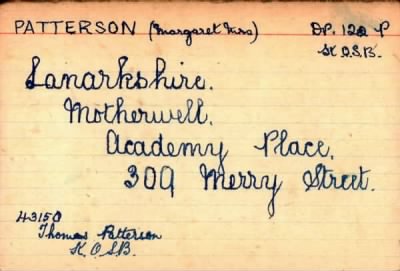 PATTERSON (Margaret Mrs) DP. 122 P
K.O.S.B.
Lanarkshire.
Motherwell.
Academy Place.
309 Merry Street.
43150
Thomas Patterson
K.O.S.B.